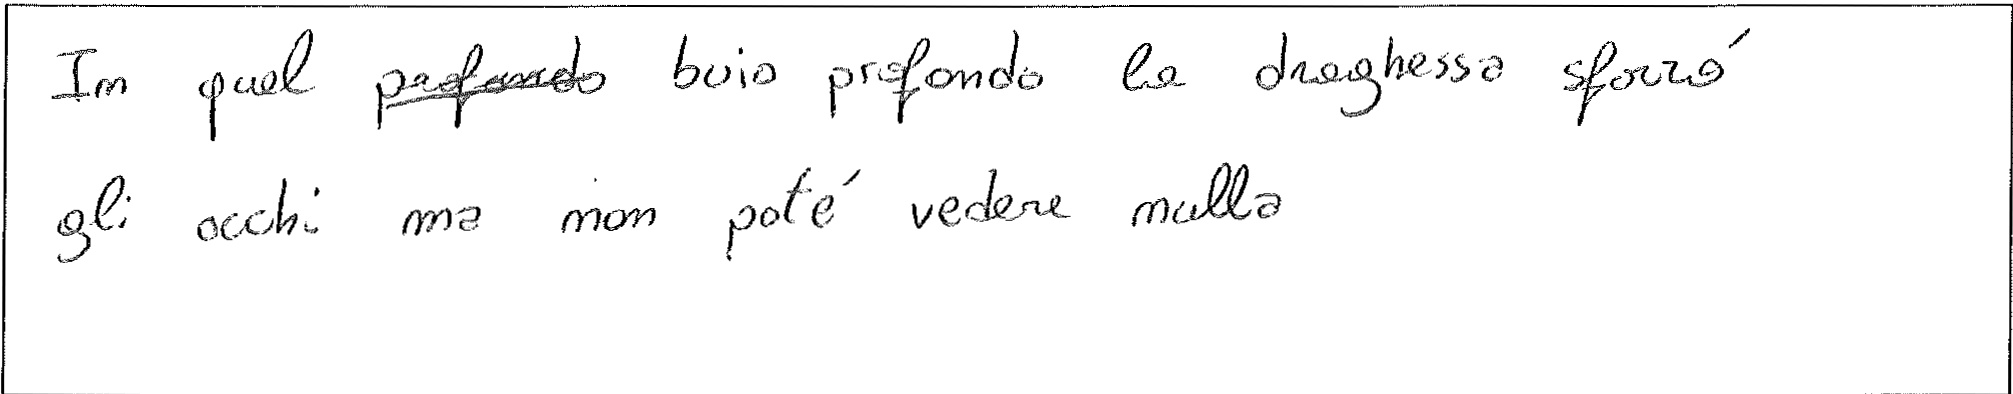 In quel profondo buio profondo la draghessa sforzó
gli occhi ma non poté vedere nulla